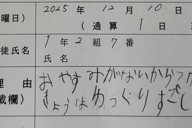 曜日) 2025年 12月 10日
(通算 1日
徒氏名 1年2組7番
氏名
理由 おやすみがないからつか
載欄) きょうはゆっくりすごし